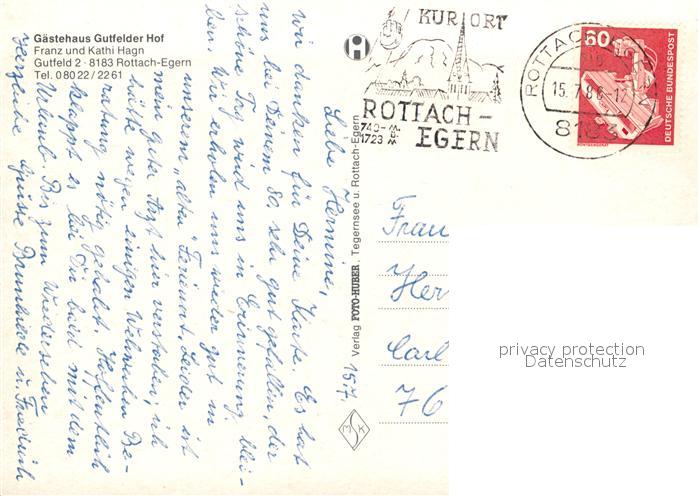 Gästehaus Gutfelder Hof
Franz und Kathi Hagn
Gutfeld 2 · 8183 Rottach-Egern
Tel. 0 80 22 / 22 61
KURORT
ROTTACH-
EGERN
740-
1723 M
ROTTACH
15.7.86-12
8183
60
DEUTSCHE BUNDESPOST
RÖNTGENGERÄT
15/7.
Liebe Hermine,
wir danken für Deine Karte. Es hat
uns bei Deinem 80. sehr gut gefallen, der
schöne Tag wird uns in Erinnerung blei-
ben. Wir erholen uns wieder gut in
unserem „alten" Ferienort. Leider ist
mein guter Arzt hier verstorben, ich
hätte wegen einigen Wehwehchen Be-
ratung nötig gehabt. Hoffentlich
klappt es bei Dir bald mit dem
Urlaub. Bis zum Wiedersehen
Herzliche Grüsse Brunhilde u. Friedrich
Verlag FOTO-HUBER, Tegernsee u. Rottach-Egern
MSK
Frau
Her
Carl
76
privacy protection
Datenschutz